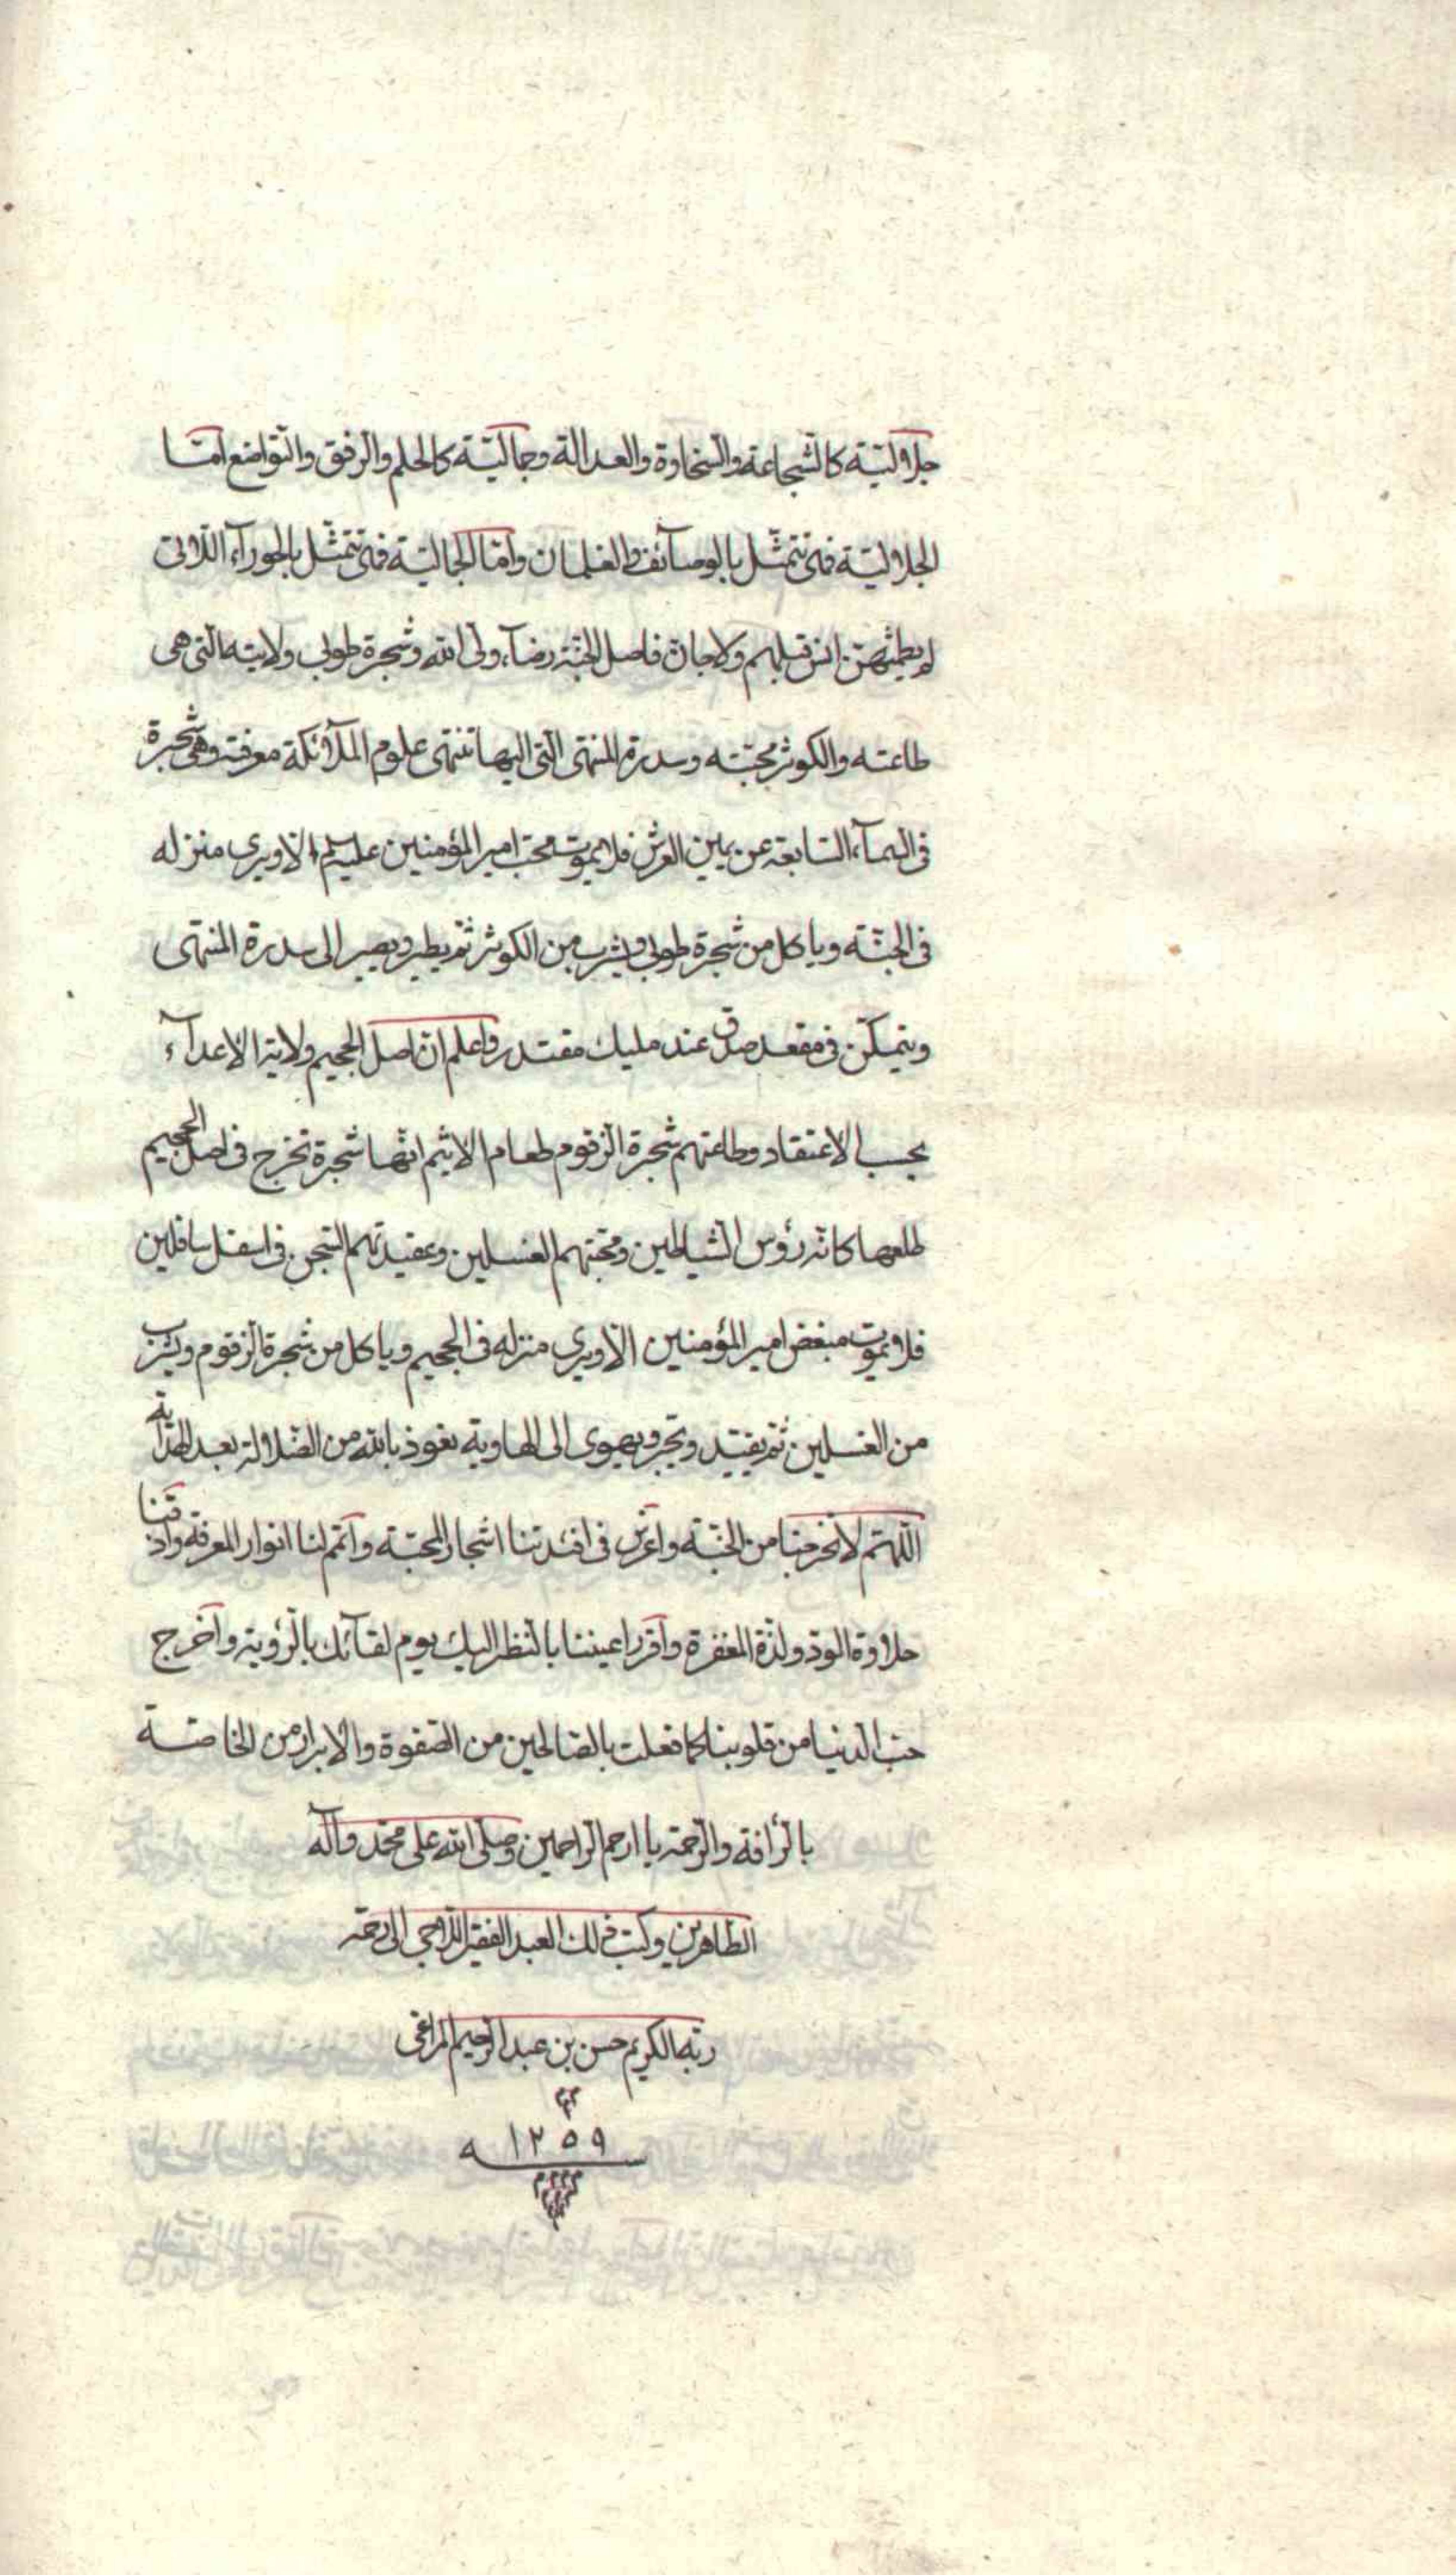 جلاليّة كالشّجاعة والسّخاوة والعدالة وجماليّة كالحلم والرّفق والتّواضع امّا
الجلاليّة فهى تتمثّل بالوصآئف والغلمان وامّا الجماليّة فهى تتمثّل بالحورآء اللّاتى
لم يطمثهنّ انس قبلهم ولا جانّ فاصل الجنّة رضآء ولىّ الله وشجرة طوبى ولايته الّتى هى
طاعته والكوثر محبّته وسدرة المنتهى الّتى اليها تنتهى علوم الملآئكة معرفته وهى شجرة
فى السّمآء السّابعة عن يمين العرش فلا يموت محبّ امير المؤمنين عليه السلم الّا ويرى منزله
فى الجنّة وياكل من شجرة طوبى ويشرب من الكوثر ثمّ يطير ويصير الى سدرة المنتهى
ويتمكّن فى مقعد صدق عند مليك مقتدر واعلم انّ اصل الجحيم ولاية الاعدآء
بحسب الاعتقاد وطاعتهم شجرة الزّقوم طعام الاثيم انّها شجرة تخرج فى اصل الجحيم
طلعها كانّه رؤس الشّياطين ومحبّتهم الغسلين وعقيدتهم السّجن فى اسفل سافلين
فلا يموت مبغض امير المؤمنين الّا ويرى منزله فى الجحيم وياكل من شجرة الزّقوم ويشرب
من الغسلين ثمّ يقيّد ويجرّ ويهوى الى الهاوية نعوذ بالله من الضّلالة بعد الهداية
اللّهمّ لا تخرجنا من الجنّة واغرس فى افئدتنا اشجار المحبّة واتمم لنا انوار المعرفة واذقنا
حلاوة الودّ ولذّة المغفرة واقرر اعيننا بالنّظر اليك يوم لقآئك بالرّؤية واخرج
حبّ الدّنيا من قلوبنا كما فعلت بالصّالحين من الصّفوة والابرار من الخاصّة
بالرّأفة والرّحمة يا ارحم الرّاحمين وصلّى الله على محمّد وآله
الطّاهرين وكتب ذلك العبد الفقير الرّاجى الى رحمة
ربّه الكريم حسن بن عبد الرّحيم المراغى
١٢٥٩